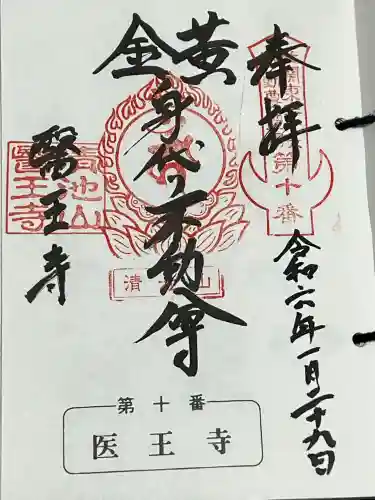 奉拝
第十番
令和六年一月二十九日
黄金
身代り不動尊
清 山
醫王寺
高池山
醫王寺
第十番
医王寺